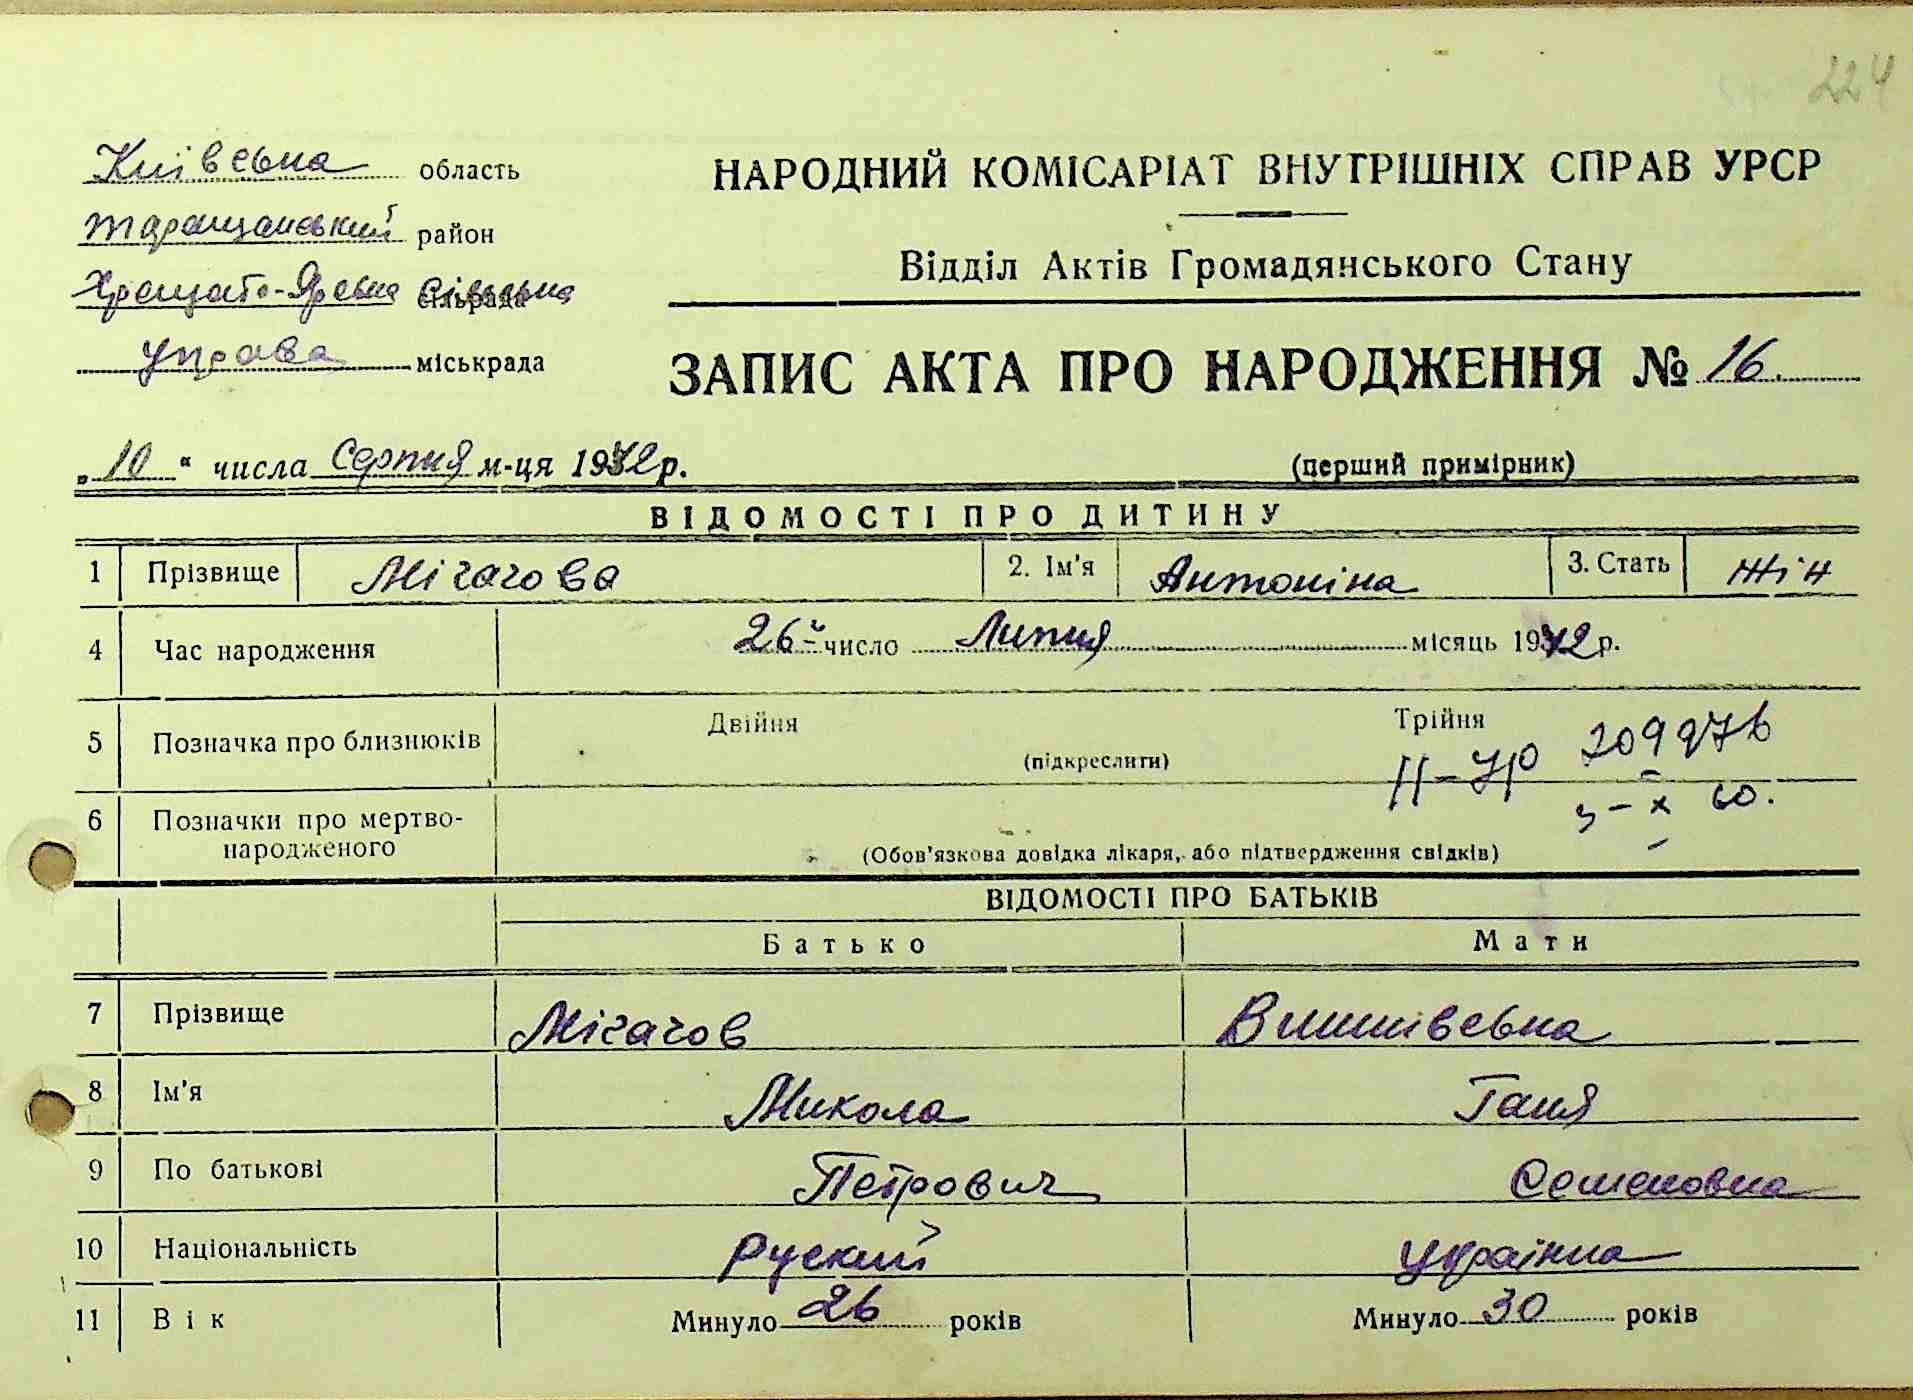 224
Київська область
Таращанський район
Хрещато-Ярська сільрада Сільська
Управа міськрада
НАРОДНИЙ КОМІСАРІАТ ВНУТРІШНІХ СПРАВ УРСР
Відділ Актів Громадянського Стану
ЗАПИС АКТА ПРО НАРОДЖЕННЯ № 16.
„10“ числа Серпня м-ця 1942 р.
(перший примірник)
ВІДОМОСТІ ПРО ДИТИНУ
1 Прізвище Мігачова 2. Ім'я Антоніна 3. Стать жін
4 Час народження 26 число Липня місяць 1942 р.
5 Позначка про близнюків Двійня (підкреслити) Трійня
ІІ-УР 209276
3-X 60.
6 Позначки про мертво-
народженого (Обов'язкова довідка лікаря, або підтвердження свідків)
ВІДОМОСТІ ПРО БАТЬКІВ
Батько Мати
7 Прізвище Мігачов Вишнівська
8 Ім'я Микола Ганя
9 По батькові Петрович Семеновна
10 Національність Руский Українка
11 Вік Минуло 26 років Минуло 30 років